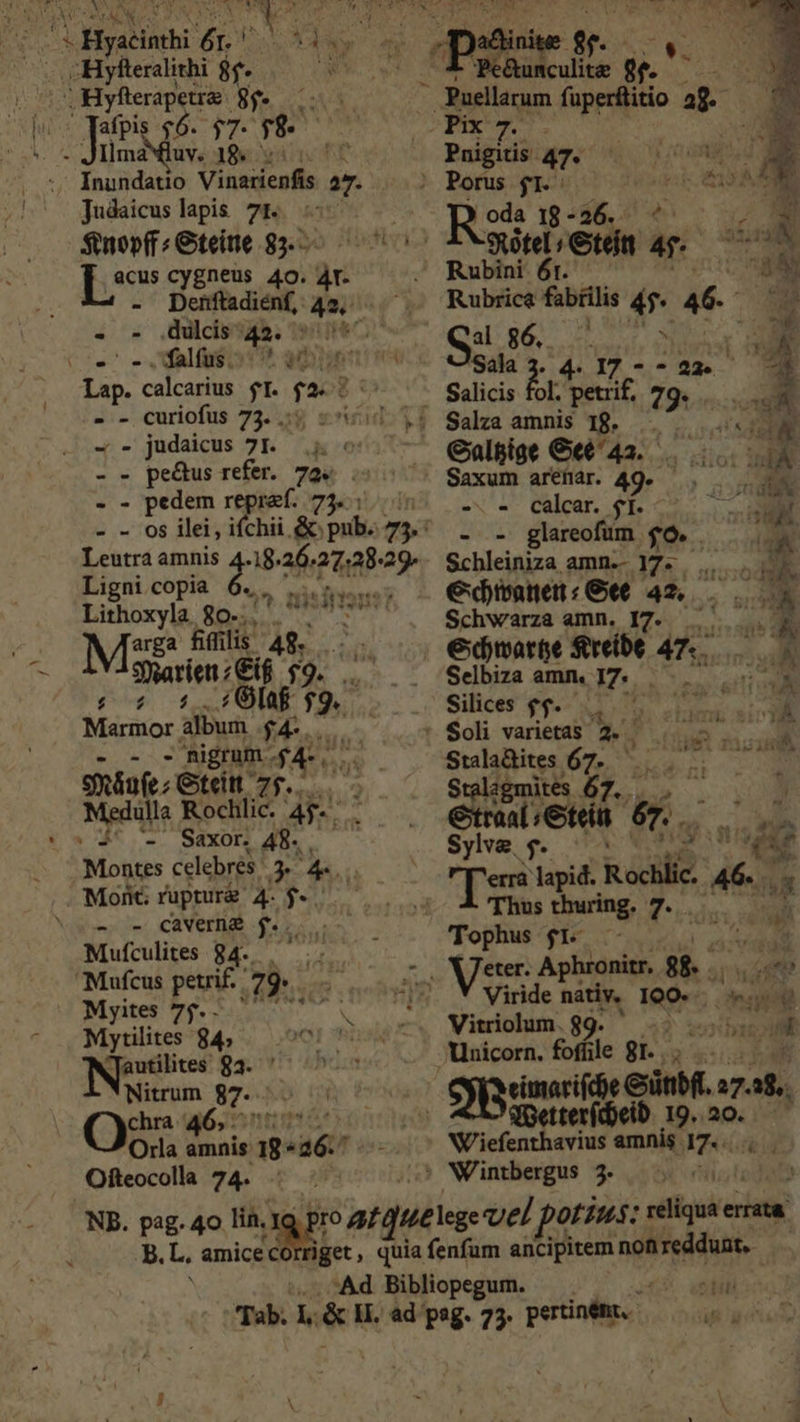 Hyacinthi 61.
Hyſteralithi 85.
Hyſterapetræ 85.
Jaſpis 56. 57. 58.
Ilma fluv. 18.
Inundatio Vinarienſis 27.
Judaicus lapis 71.
Knopff-Steine 83.
Lacus cygneus 40. 41.
- Denſtadienſ. 42.
- - dulcis 42.
- - ſalſus
Lap. calcarius 51. 52.
- - curioſus 73.
- - judaicus 71.
- - pectus refer. 72.
- - pedem repræſ. 73.
- - os ilei, iſchii & pub. 73.
Leutra amnis 4.18.26.27.28.29.
Ligni copia 6.
Lithoxyla 80.
Marga fiſſilis 48.
Marien-Eiß 59.
- - - Glaß 59.
Marmor album 54.
- - - nigrum 54.
Mäuſe-Stein 75.
Medulla Rochlic. 45.
- Saxor. 48.
Montes celebres 3. 4.
Mont. rupturæ 4. 5.
- - cavernæ 5.
Muſculites 84.
Muſcus petrif. 79.
Myites 75.
Mytilites 84,
Nautilites 82.
Nitrum 87.
Ochra 46,
Orla amnis 18-26.
Oſteocolla 74.
Pactinitæ 85.
Pectunculitæ 85.
Puellarum ſuperſtitio 28.
Pix 7.
Pnigitis 47.
Porus 51.
Roda 18-26.
Rötel-Stein 45.
Rubini 61.
Rubrica fabrilis 45. 46.
Sal 86.
Sala 3. 4. 17 - - 22.
Salicis fol. petrif. 79.
Salza amnis 18.
Saltzige See 42.
Saxum arenar. 49.
- - calcar. 51.
- - glareoſum 50.
Schleiniza amn. 17.
Schwanen-See 42.
Schwarza amn. 17.
Schwartze Kreide 47.
Selbiza amn. 17.
Silices 55.
Soli varietas 2.
Stalactites 67.
Stalagmites 67.
Straal-Stein 67.
Sylvæ 5.
Terra lapid. Rochlic. 46.
Thus thuring. 7.
Tophus 51.
Veter. Aphronitr. 88.
Viride nativ. 100.
Vitriolum 89.
Unicorn. foſſile 81.
Weimariſche Sündfl. 27.28.
Wetterſcheid 19. 20.
Wieſenthavius amnis 17.
Wintbergus 3.
NB. pag. 40 lin. 19 pro atque lege vel potius: reliqua errata
B. L. amice corriget, quia ſenſum ancipitem non reddunt.
Ad Bibliopegum.
Tab. I. & II. ad pag. 73. pertinent.